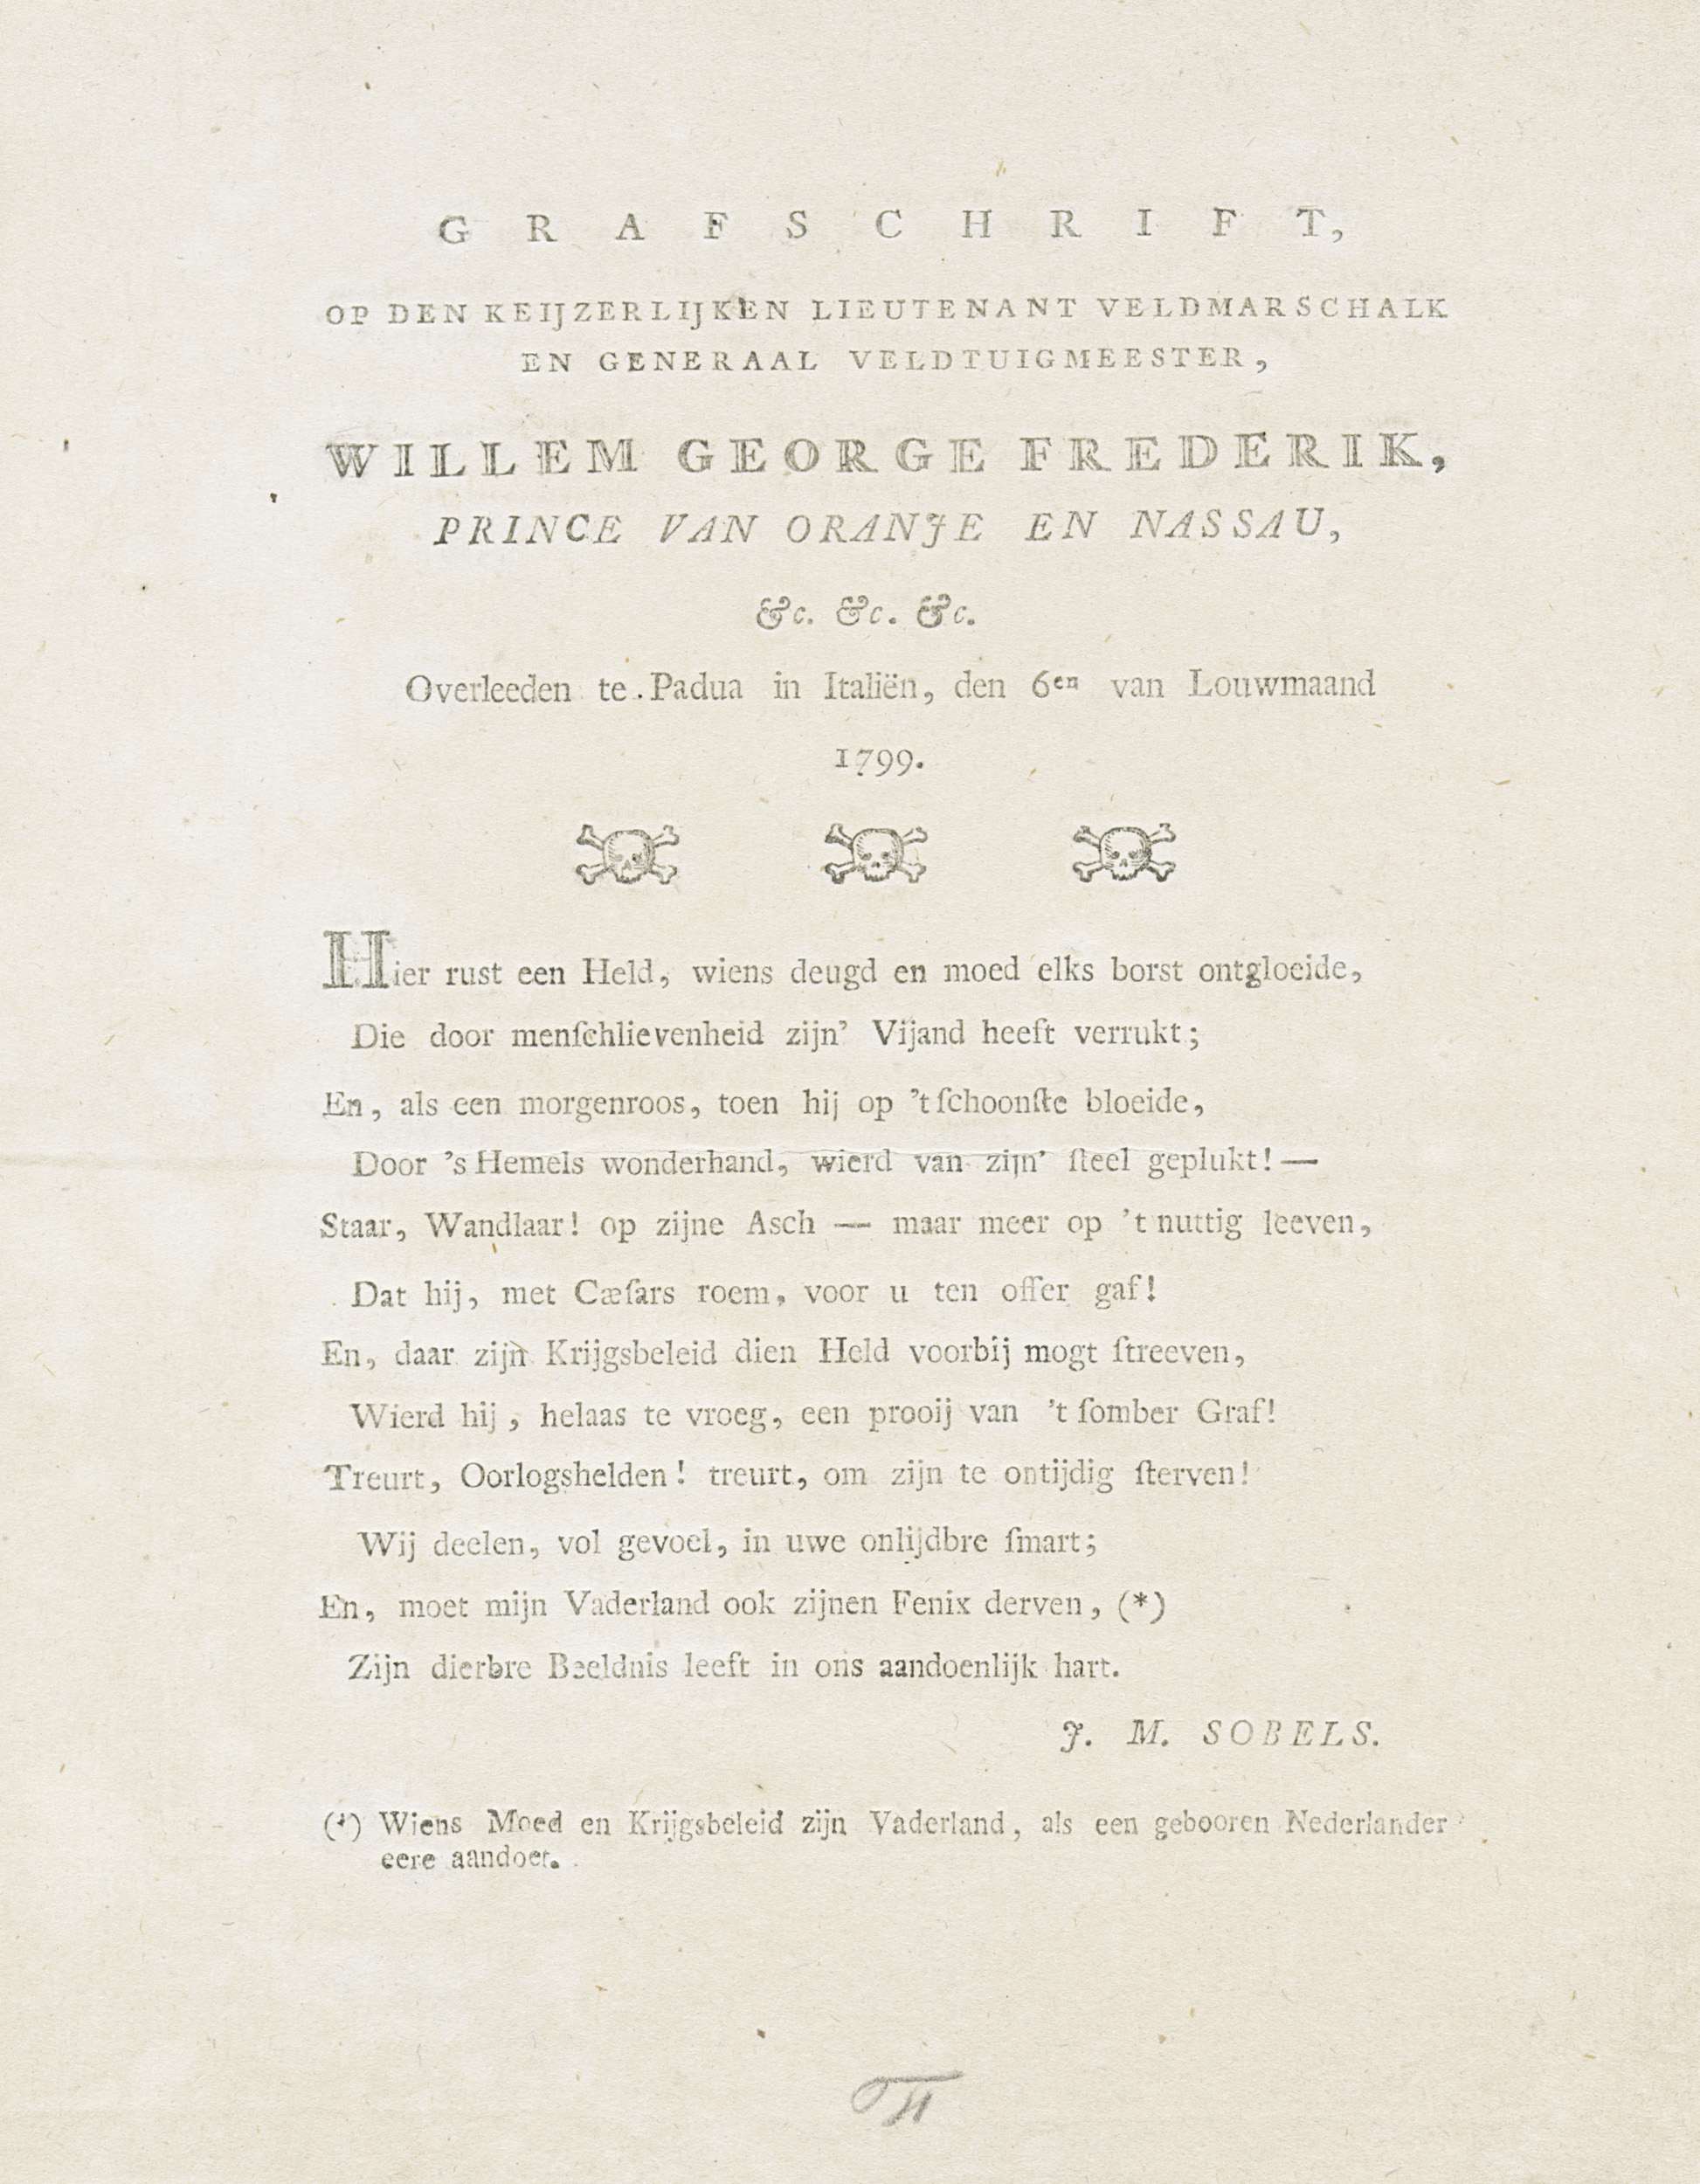 GRAFSCHRIFT,
OP DEN KEIJZERLIJKEN LIEUTENANT VELDMARSCHALK
EN GENERAAL VELDTUIGMEESTER,
WILLEM GEORGE FREDERIK,
PRINCE VAN ORANJE EN NASSAU,
&c. &c. &c.
Overleeden te Padua in Italiën, den 6en van Louwmaand
1799.
Hier rust een Held, wiens deugd en moed elks borst ontgloeide,
Die door menſchlievenheid zijn’ Vijand heeft verrukt;
En, als een morgenroos, toen hij op ’t ſchoonſte bloeide,
Door ’s Hemels wonderhand, wierd van zijn’ ſteel geplukt! —
Staar, Wandlaar! op zijne Asch — maar meer op ’t nuttig leeven,
Dat hij, met Cæſars roem, voor u ten offer gaf!
En, daar zijn Krijgsbeleid dien Held voorbij mogt ſtreeven,
Wierd hij, helaas te vroeg, een prooij van ’t ſomber Graf!
Treurt, Oorlogshelden! treurt, om zijn te ontijdig ſterven!
Wij deelen, vol gevoel, in uwe onlijdbre ſmart;
En, moet mijn Vaderland ook zijnen Fenix derven, (*)
Zijn dierbre Beeldnis leeft in ons aandoenlijk hart.
J. M. SOBELS.
(*) Wiens Moed en Krijgsbeleid zijn Vaderland, als een gebooren Nederlander
eere aandoet.